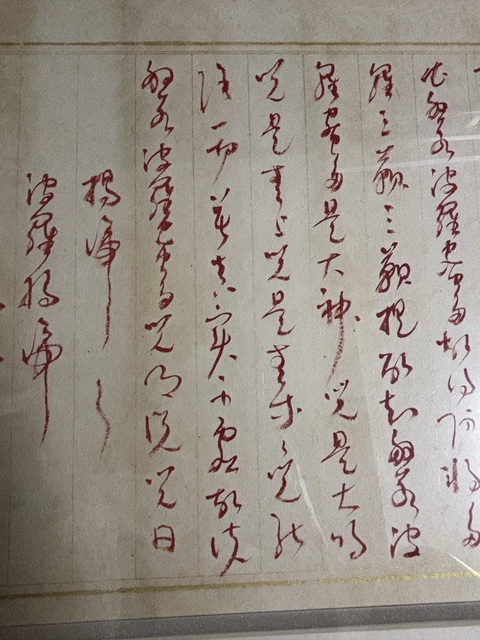 依般若波羅蜜多故得阿耨多
羅三藐三藐提故知般若波
羅蜜多是大神咒是大明
咒是無上咒是無等々咒能
除一切苦真實不虛故說
般若波羅蜜多咒即說咒曰
揭諦々
波羅揭諦